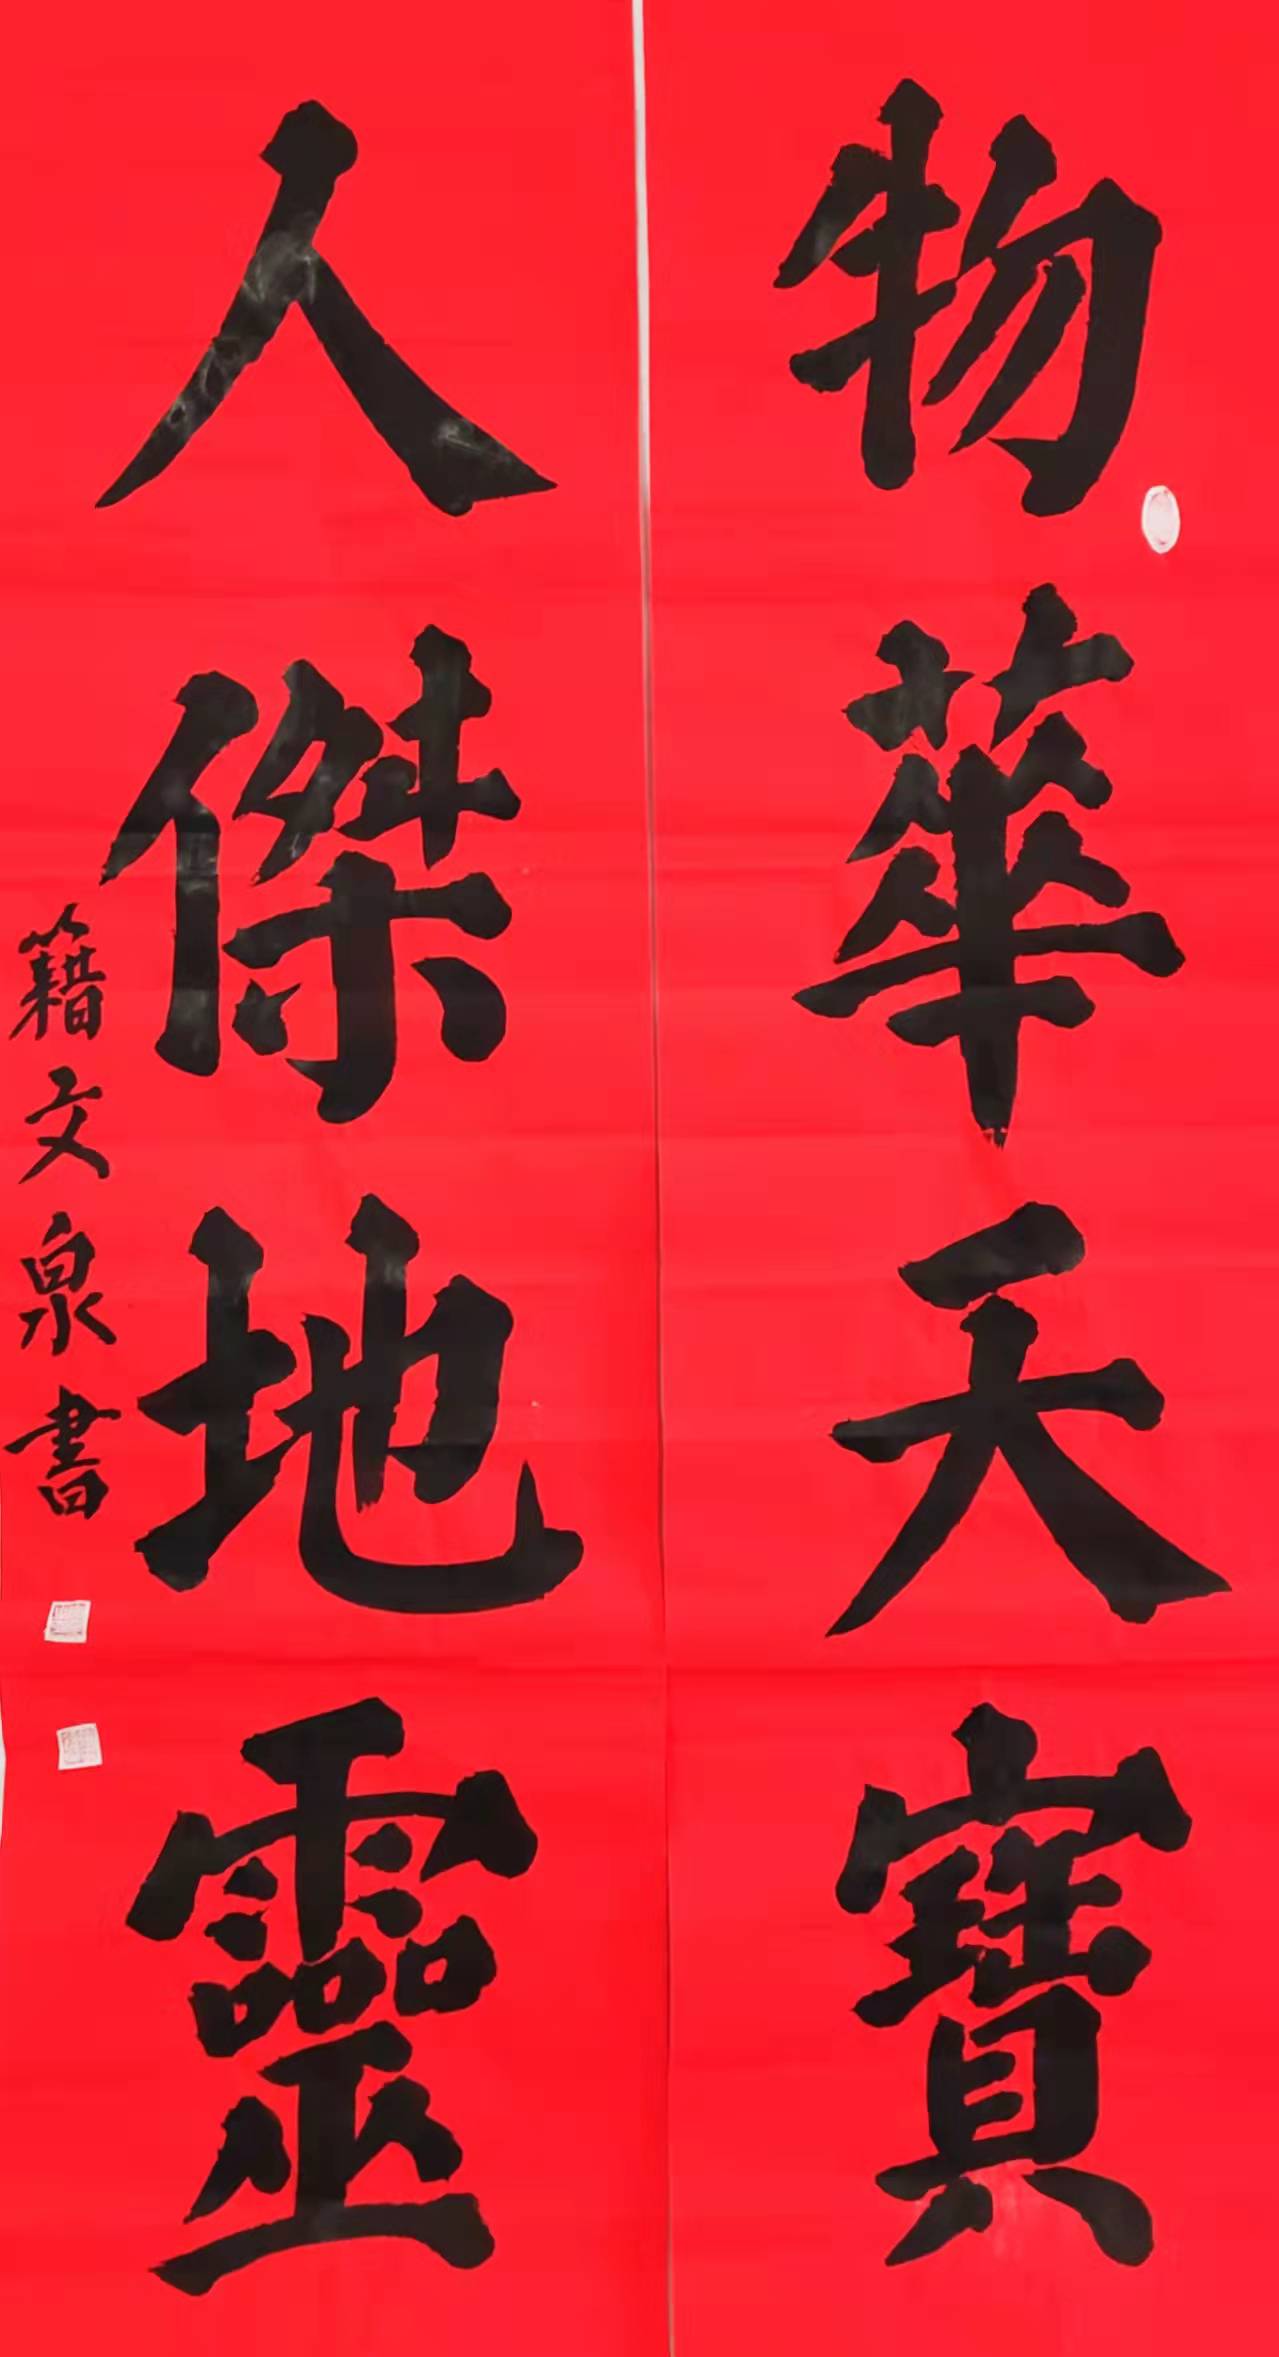 物華天寶
人傑地靈
籍文泉書